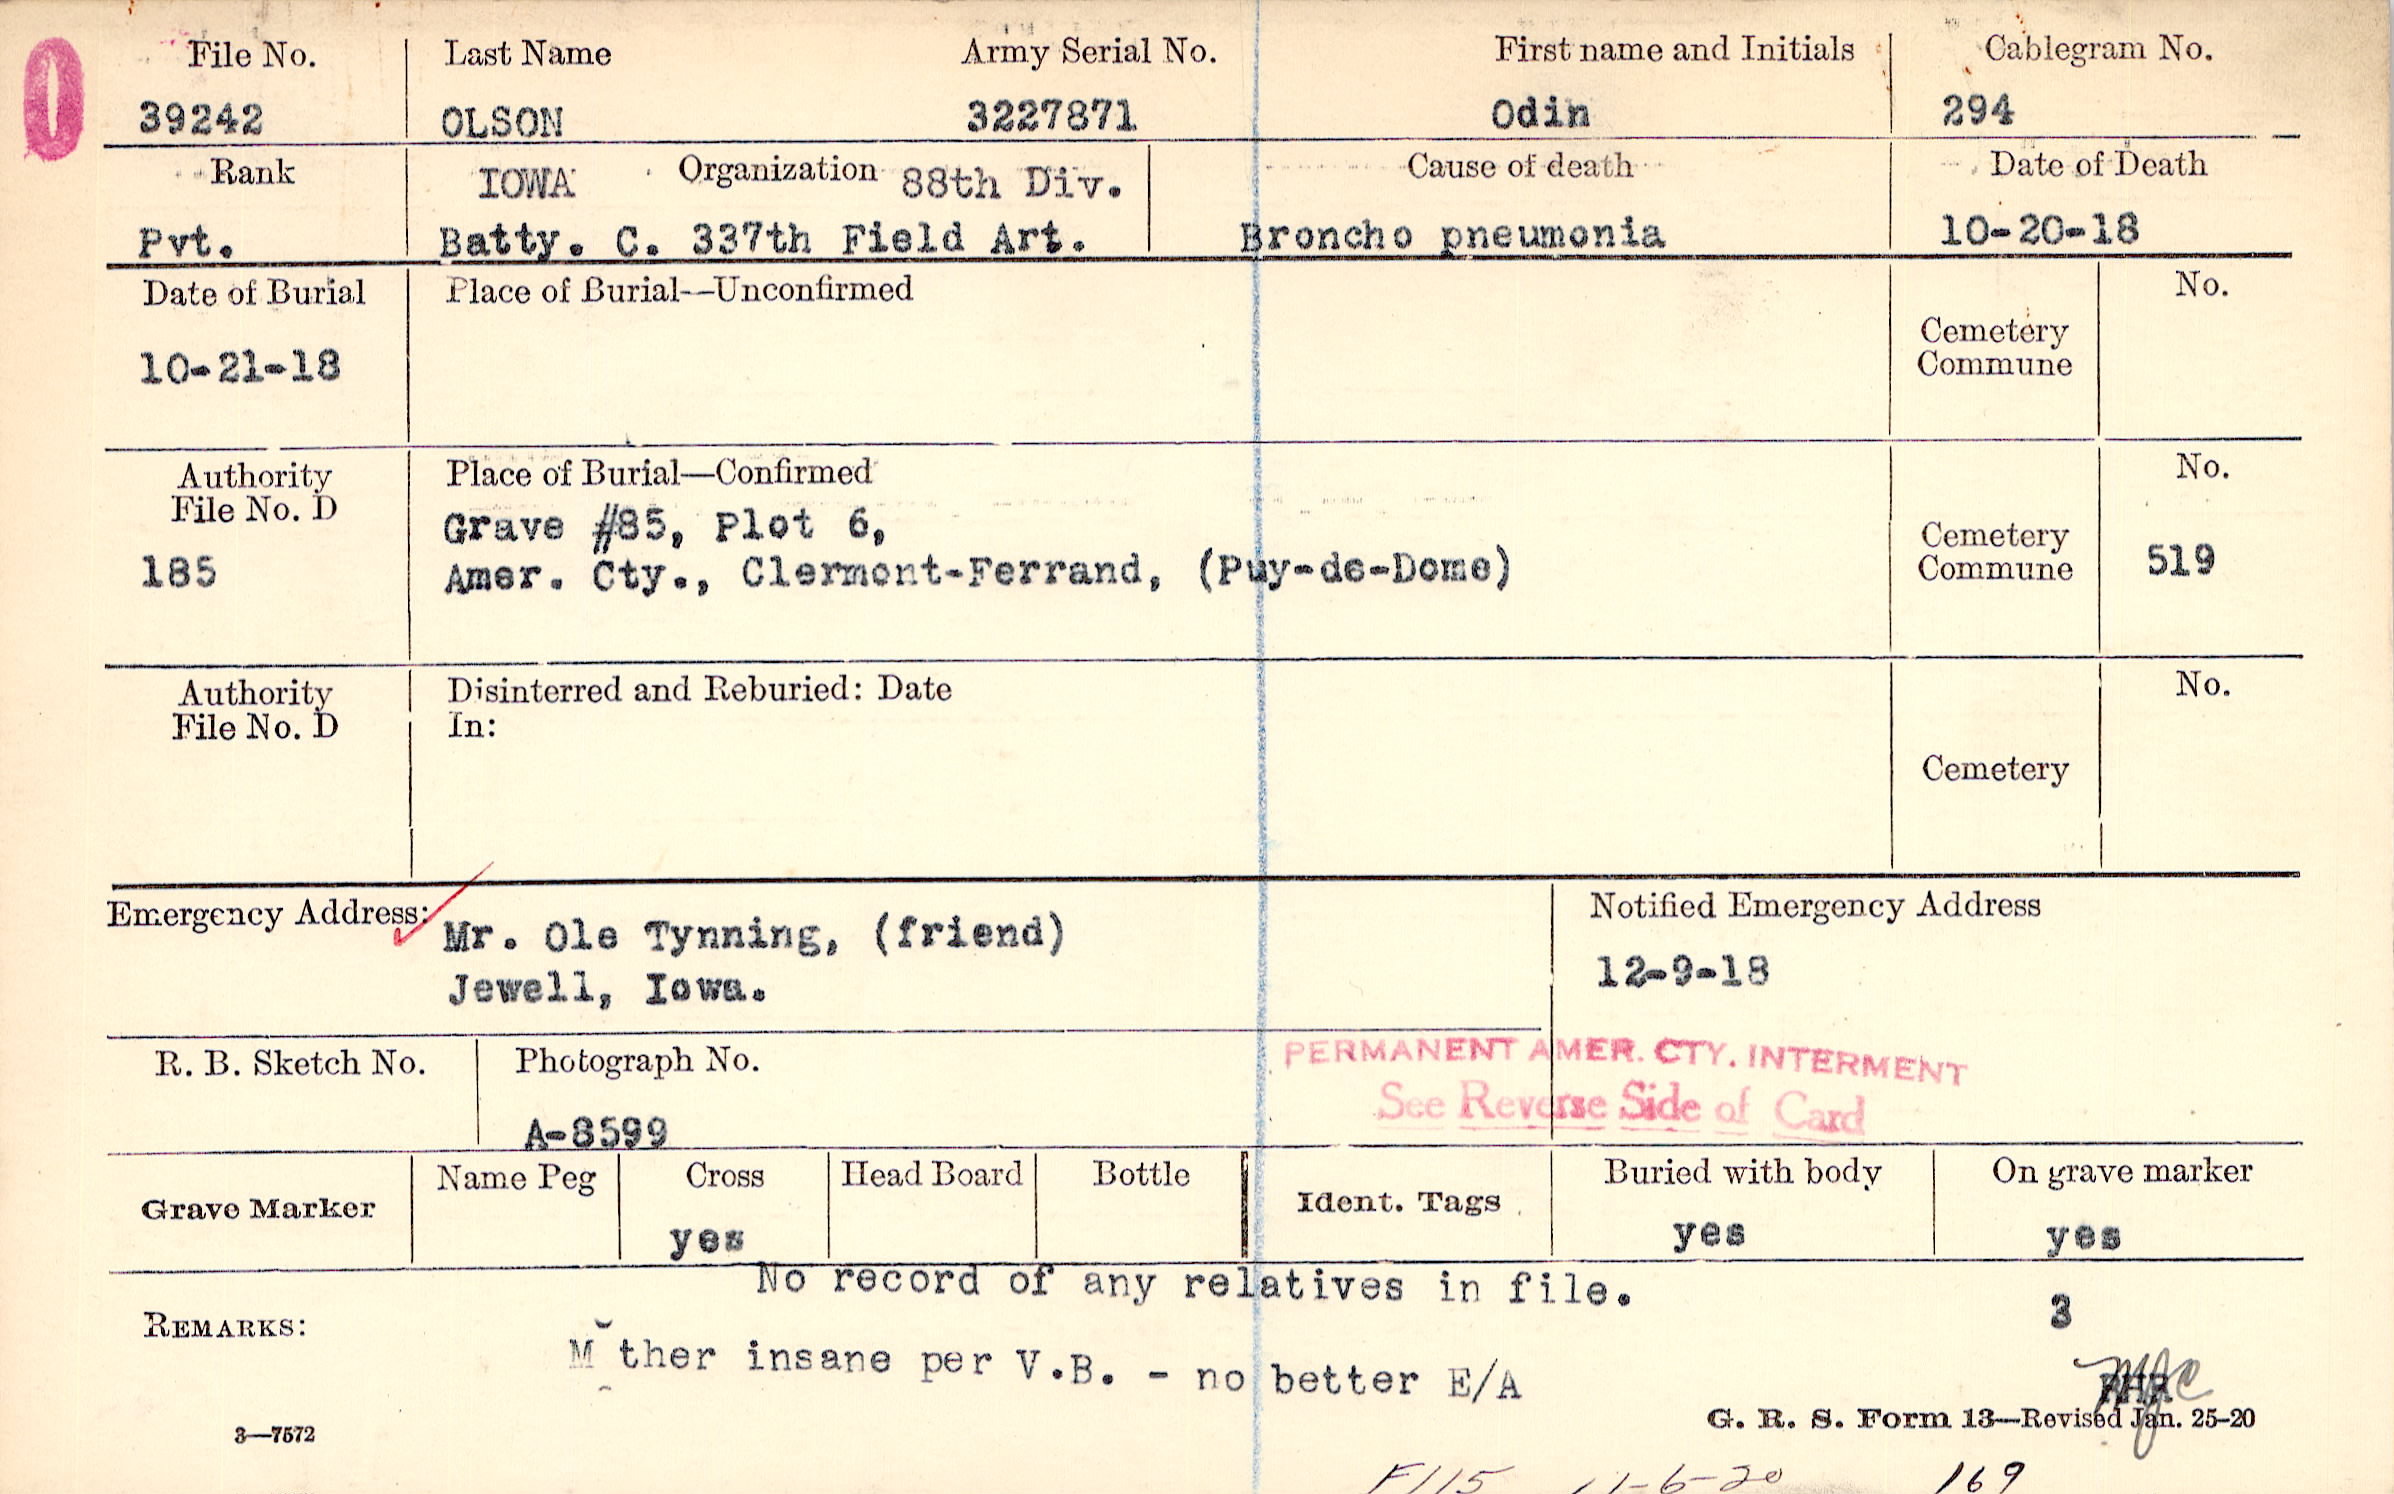 0
File No. Last Name Army Serial No. First name and Initials Cablegram No.
39242 OLSON 3227871 Odin 294
Rank IOWA Organization 88th Div. Cause of death Date of Death
Pvt. Batty. C. 337th Field Art. Broncho pneumonia 10-20-18
Date of Burial Place of Burial—Unconfirmed No.
Cemetery
Commune
10-21-18
Authority Place of Burial—Confirmed No.
File No. D
Grave #85, Plot 6,
Cemetery
185 Amer. Cty., Clermont-Ferrand, (Puy-de-Dome) Commune 519
Authority Disinterred and Reburied: Date No.
File No. D In:
Cemetery
Emergency Address: Mr. Ole Tynning, (friend) Notified Emergency Address
Jewell, Iowa. 12-9-18
R. B. Sketch No. Photograph No. PERMANENT AMER. CTY. INTERMENT
See Reverse Side of Card
A-8599
Grave Marker Name Peg Cross Head Board Bottle Ident. Tags Buried with body On grave marker
yes yes yes
No record of any relatives in file.
REMARKS: 3
M ther insane per V.B. - no better E/A
G. R. S. Form 13—Revised Jan. 25-20
3—7572
F115 11-6-20 169